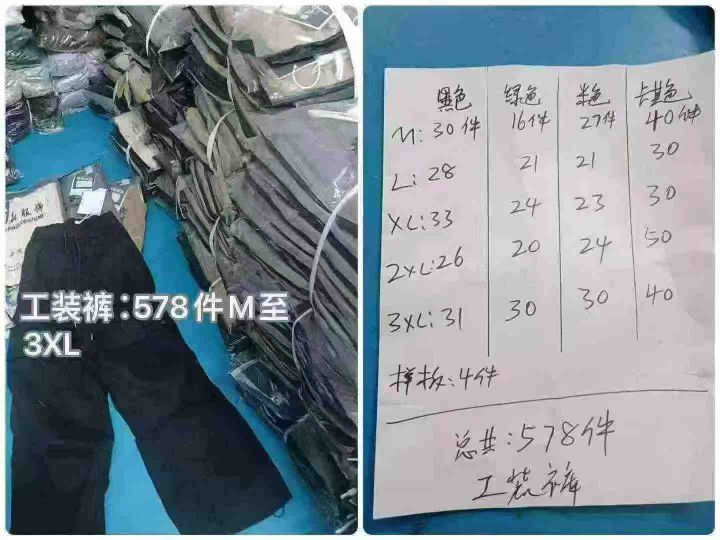 服饰
工装裤:578件M至
3XL
黑色 绿色 米色 卡其色
M:30件 16件 27件 40件
L:28 21 21 30
XL:33 24 23 30
2XL:26 20 24 50
3XL:31 30 30 40
样板:4件
总共:578件
工装裤